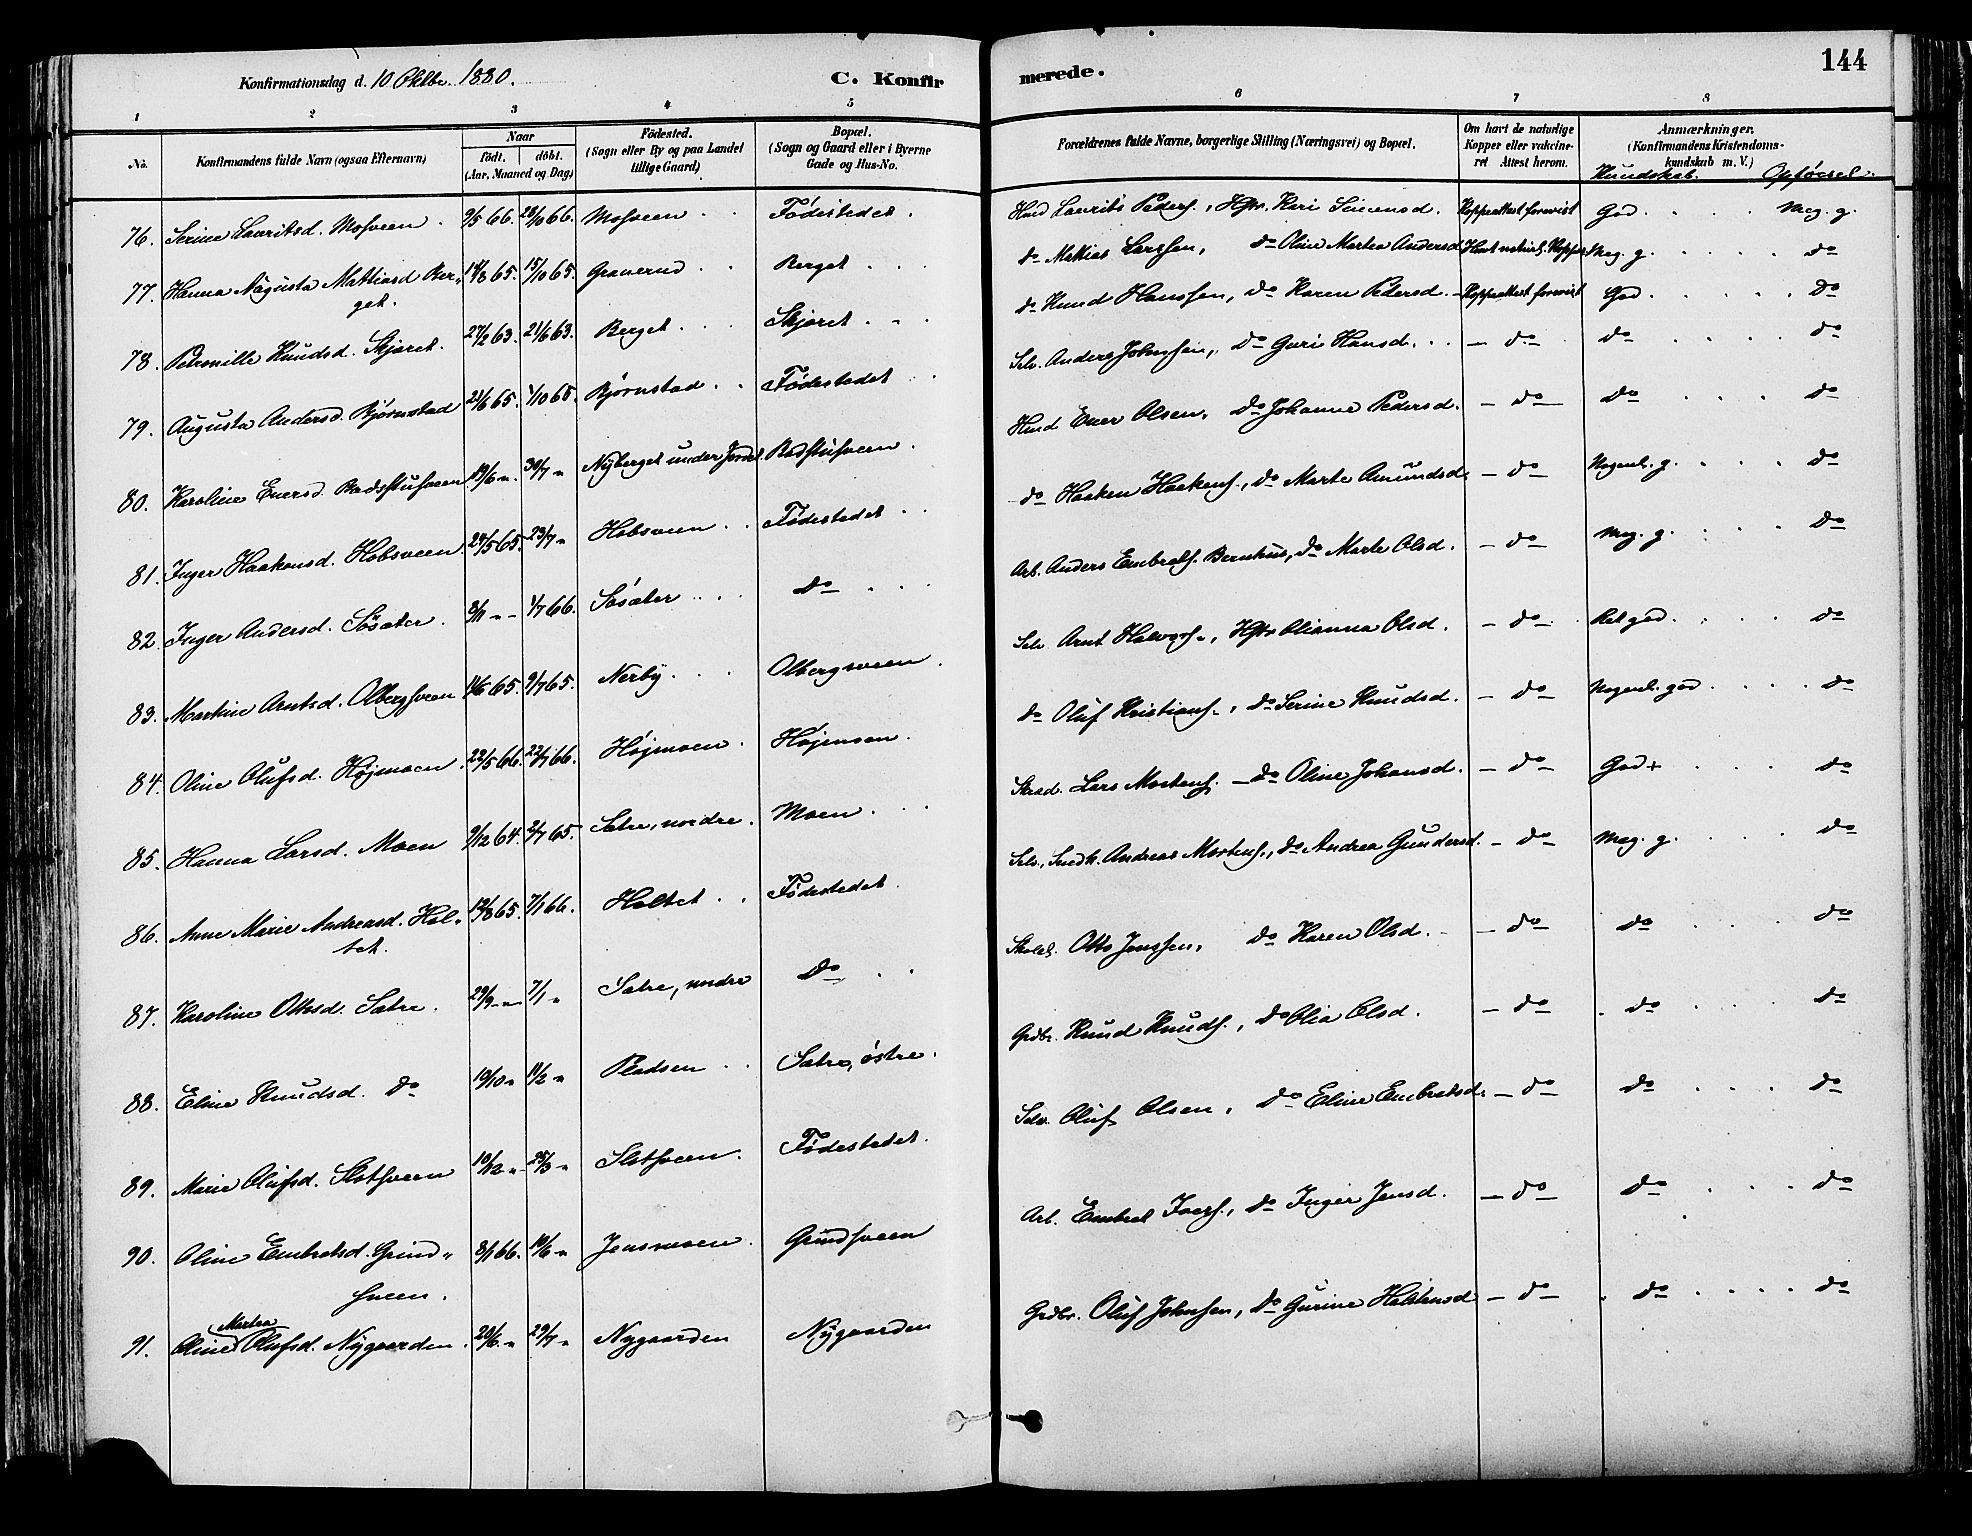 Konfirmationsdag d. 10 Oktbr. 1880.
C. Konfir
merede.
144
1 2 3 4 5 6 7 8
No.
Konfirmandens fulde Navn (ogsaa Efternavn)
Naar
födt. döbt.
(Aar, Maaned og Dag)
Födested.
(Sogn eller By og paa Landet
tillige Gaard)
Bopæl.
(Sogn og Gaard eller i Byerne
Gade og Hus-No.
Forældrenes fulde Navne, borgerlige Stilling (Næringsvei) og Bopæl.
Om havt de naturlige
Kopper eller vakcine-
ret Attest herom.
Anmærkninger.
(Konfirmandens Kristendoms-
kundskab m. V.)
Kundskab. Opførsel.
76. Serine Lauritsd. Mosveen. 9/5 66. 28/10 66. Mosveen Fødestedet. Husd Laurits Peders., Hstr. Kari Simensd. Koppeattest forevist God. Meg. g.
77. Hanna Augusta Mathiasd Ber-
get. 14/8 65. 15/10 65. Graverud Berget do Matias Larssen, do Oline Martea Andersd Havt naturl. Kopper Meg. g. do
78. Petronille Knudsd. Skjøret. 27/2 63. 21/6 63. Berget Skjøret do Knud Hanssen, do Karen Pedersd. Koppeattest forevist God do
79. Augusta Andersd. Bjørnstad 21/6 65. 1/10 65. Bjørnstad Fødestedet Selv. Anders Johnssen, do Guri Hansd. do do do
80. Karoline Eversd. Badstusveen 19/6 " 30/7 " Nyberget under Jordet Badstusveen. Husd Ever Olsen, do Johanne Pedersd. do do do
81. Inger Haakensd. Hobsveen. 24/5 65. 23/7 " Hobsveen Fødestedet do Haaken Haakens., do Marte Amundsd. do Nogenl. g. do
82. Inger Andersd. Søsæter. 8/11 " 1/7 66. Søsæter do Arb. Anders Embrets. Bernhus, do Marte Olsd. do Meg. g. do
83. Martine Arntsd. Olbergsveen 11/5 65. 9/7 65. Nerby Olbergsveen. Selv. Arnt Halvors., Hstr Olianna Olsd. do Ret god. do
84. Oline Olufsd. Højmoen 22/5 66. 22/7 66. Højmoen. Højmoen. do Oluf Kristians., do Serine Knudsd. do Nogenl. god do
85. Hanna Larsd. Moen 9/12 64. 2/7 65. Sætre, nordre. Moen. Skræd. Lars Mortens. do Oline Johansd. do God + do
86. Anne Marie Andreasd. Hol-
tet. 12/8 65. 7/1 66. Holtet Fødestedet. Selv, Andreas Mortens., do Andrea Gundersd. do Meg. g. do
87. Karoline Ottosd. Sætre. 29/9 " 7/1 " Sætre, nordre do Otto Jenssen, do Karen Olsd. do do do
88. Eline Knudsd. do 19/10 " 11/2 " Pladsen Sætre, østre. Grdbr. Knud Knuds., do Olia Olsd. do do do
89. Marie Olufsd. Slotsveen 10/12 " 25/3 " Slotsveen. Fødestedet. Selv. Oluf Olsen, do Eline Embretsd. do do do
90. Oline Embretsd. Grind-
sveen. 8/1 66. 10/6 " Jensmoen. Grindsveen Arb. Embret Ivers., do Inger Jensd. do do do
91. Oline Martea Olufsd. Nygaarden. 20/6 " 29/7 " Nygaarden Nygaarden Grdbr. Oluf Johnsen, do Gurine Halstensd do do do